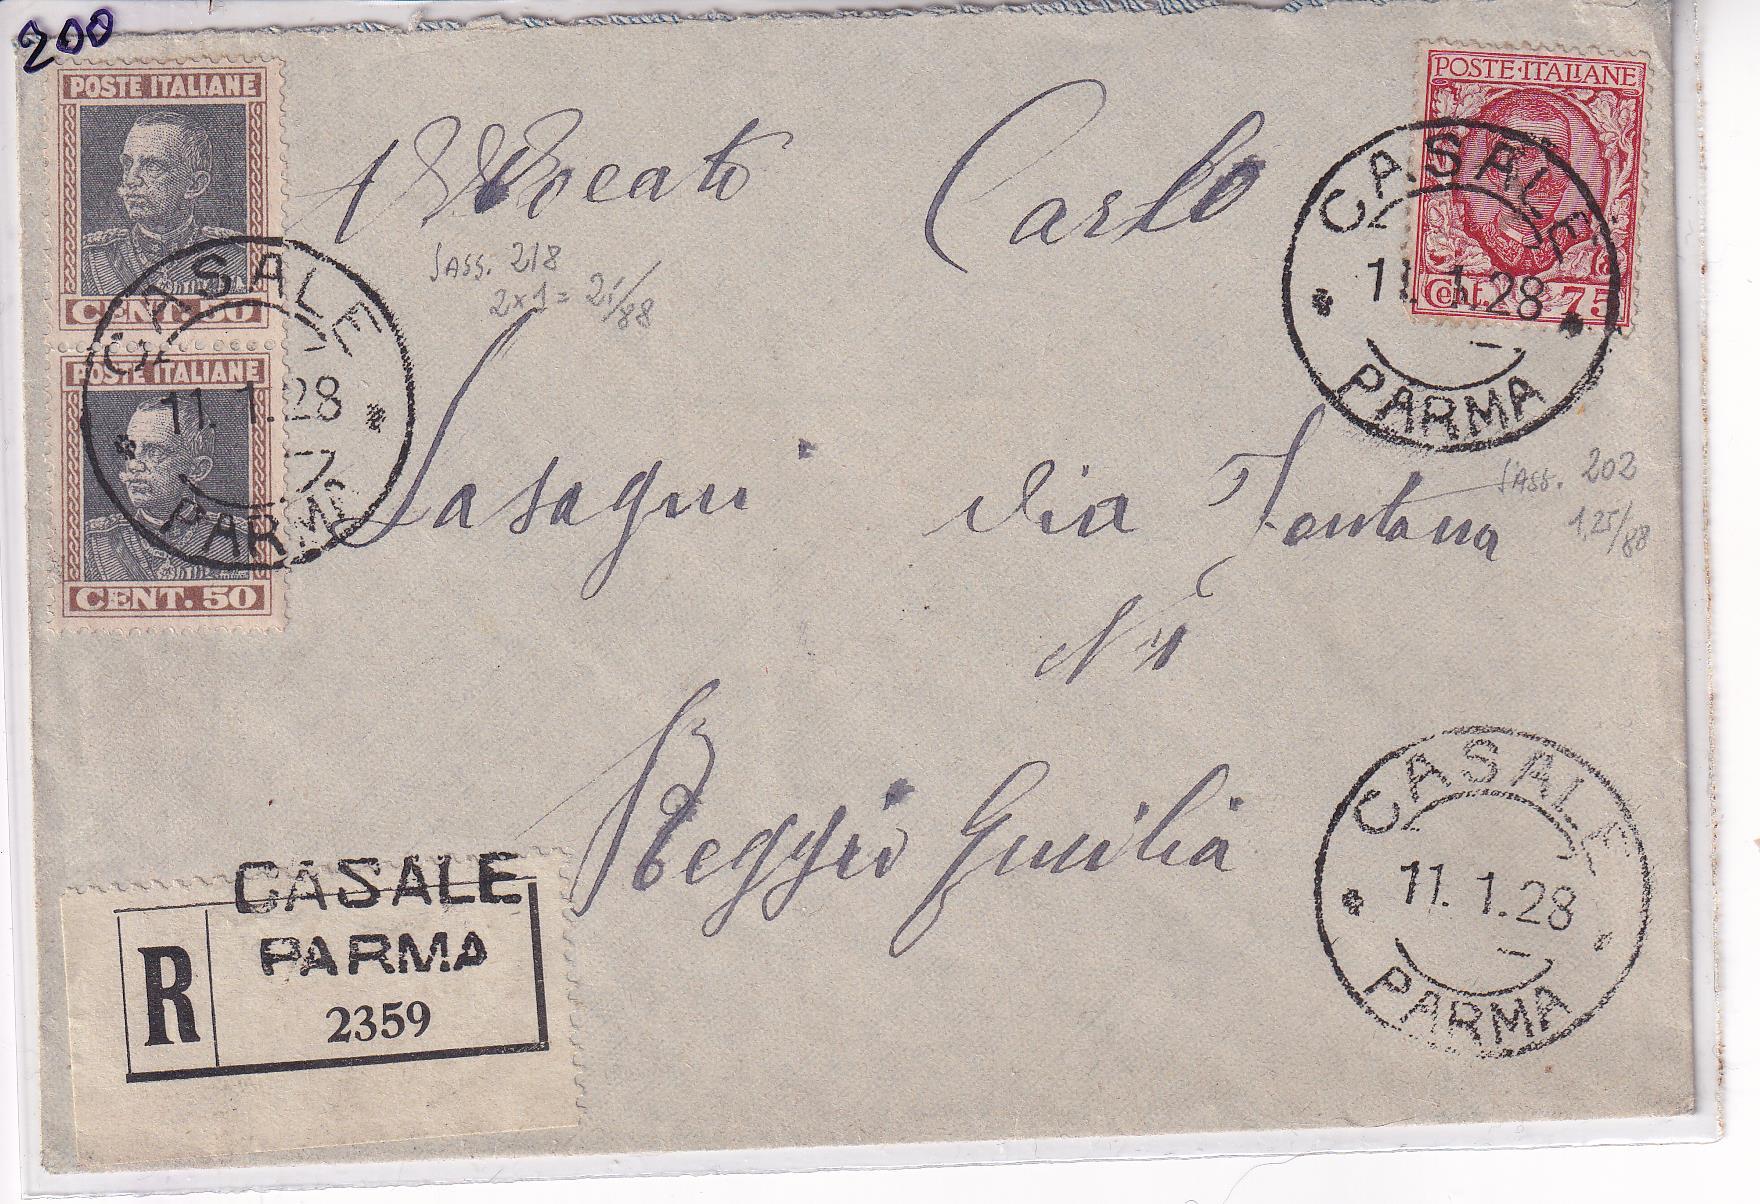 200
POSTE ITALIANE
CENT. 50
POSTE ITALIANE
CENT. 50
CASALE
11.1.28
PARMA
POSTE·ITALIANE
Cent. 75
CASALE
11.1.28
PARMA
Avvocato Carlo
SASS. 218
2x1= 2/88
Lasagni Via Fontana
SASS. 202
1,25/88
Reggio Emilia
CASALE
11.1.28
PARMA
R
CASALE
PARMA
2359